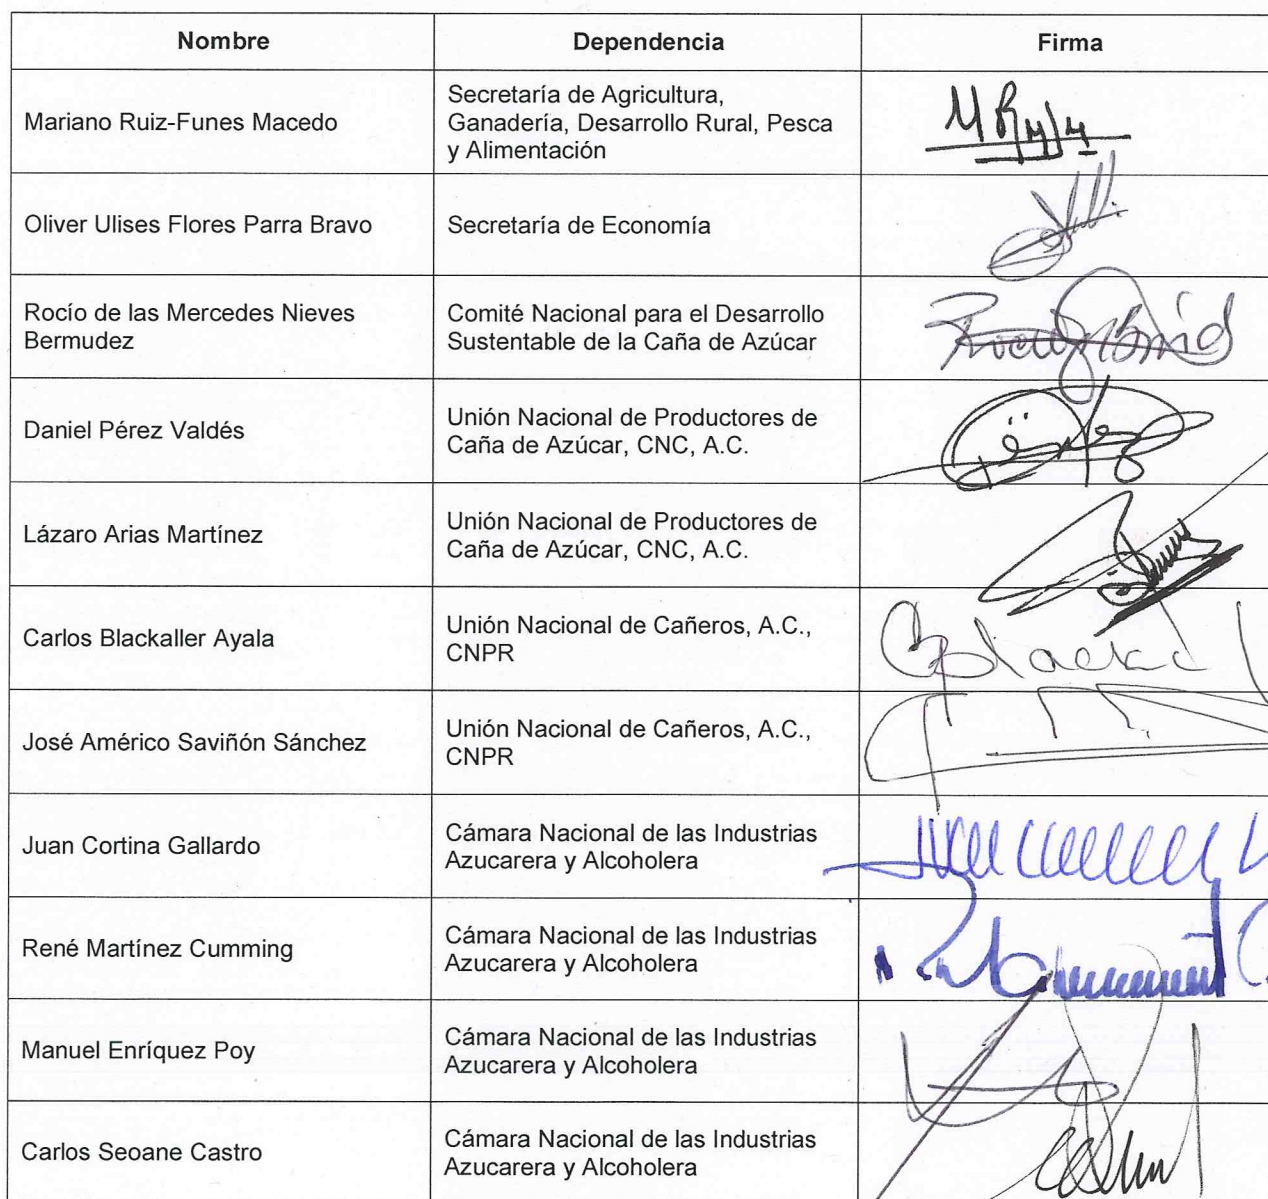 Nombre Dependencia Firma
Mariano Ruiz-Funes Macedo
Secretaría de Agricultura,
Ganadería, Desarrollo Rural, Pesca
y Alimentación
Oliver Ulises Flores Parra Bravo
Secretaría de Economía
Rocío de las Mercedes Nieves
Bermudez
Comité Nacional para el Desarrollo
Sustentable de la Caña de Azúcar
Daniel Pérez Valdés
Unión Nacional de Productores de
Caña de Azúcar, CNC, A.C.
Lázaro Arias Martínez
Unión Nacional de Productores de
Caña de Azúcar, CNC, A.C.
Carlos Blackaller Ayala
Unión Nacional de Cañeros, A.C.,
CNPR
José Américo Saviñón Sánchez
Unión Nacional de Cañeros, A.C.,
CNPR
Juan Cortina Gallardo
Cámara Nacional de las Industrias
Azucarera y Alcoholera
René Martínez Cumming
Cámara Nacional de las Industrias
Azucarera y Alcoholera
Manuel Enríquez Poy
Cámara Nacional de las Industrias
Azucarera y Alcoholera
Carlos Seoane Castro
Cámara Nacional de las Industrias
Azucarera y Alcoholera